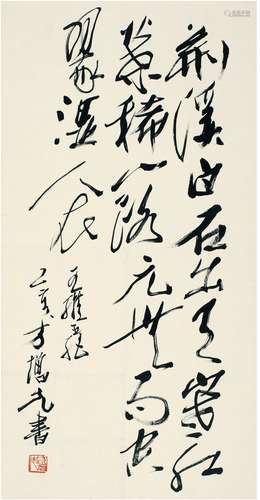 荊溪白石出天寒紅
葉稀山路元無雨空
翠濕人衣
王維詩
方增先書